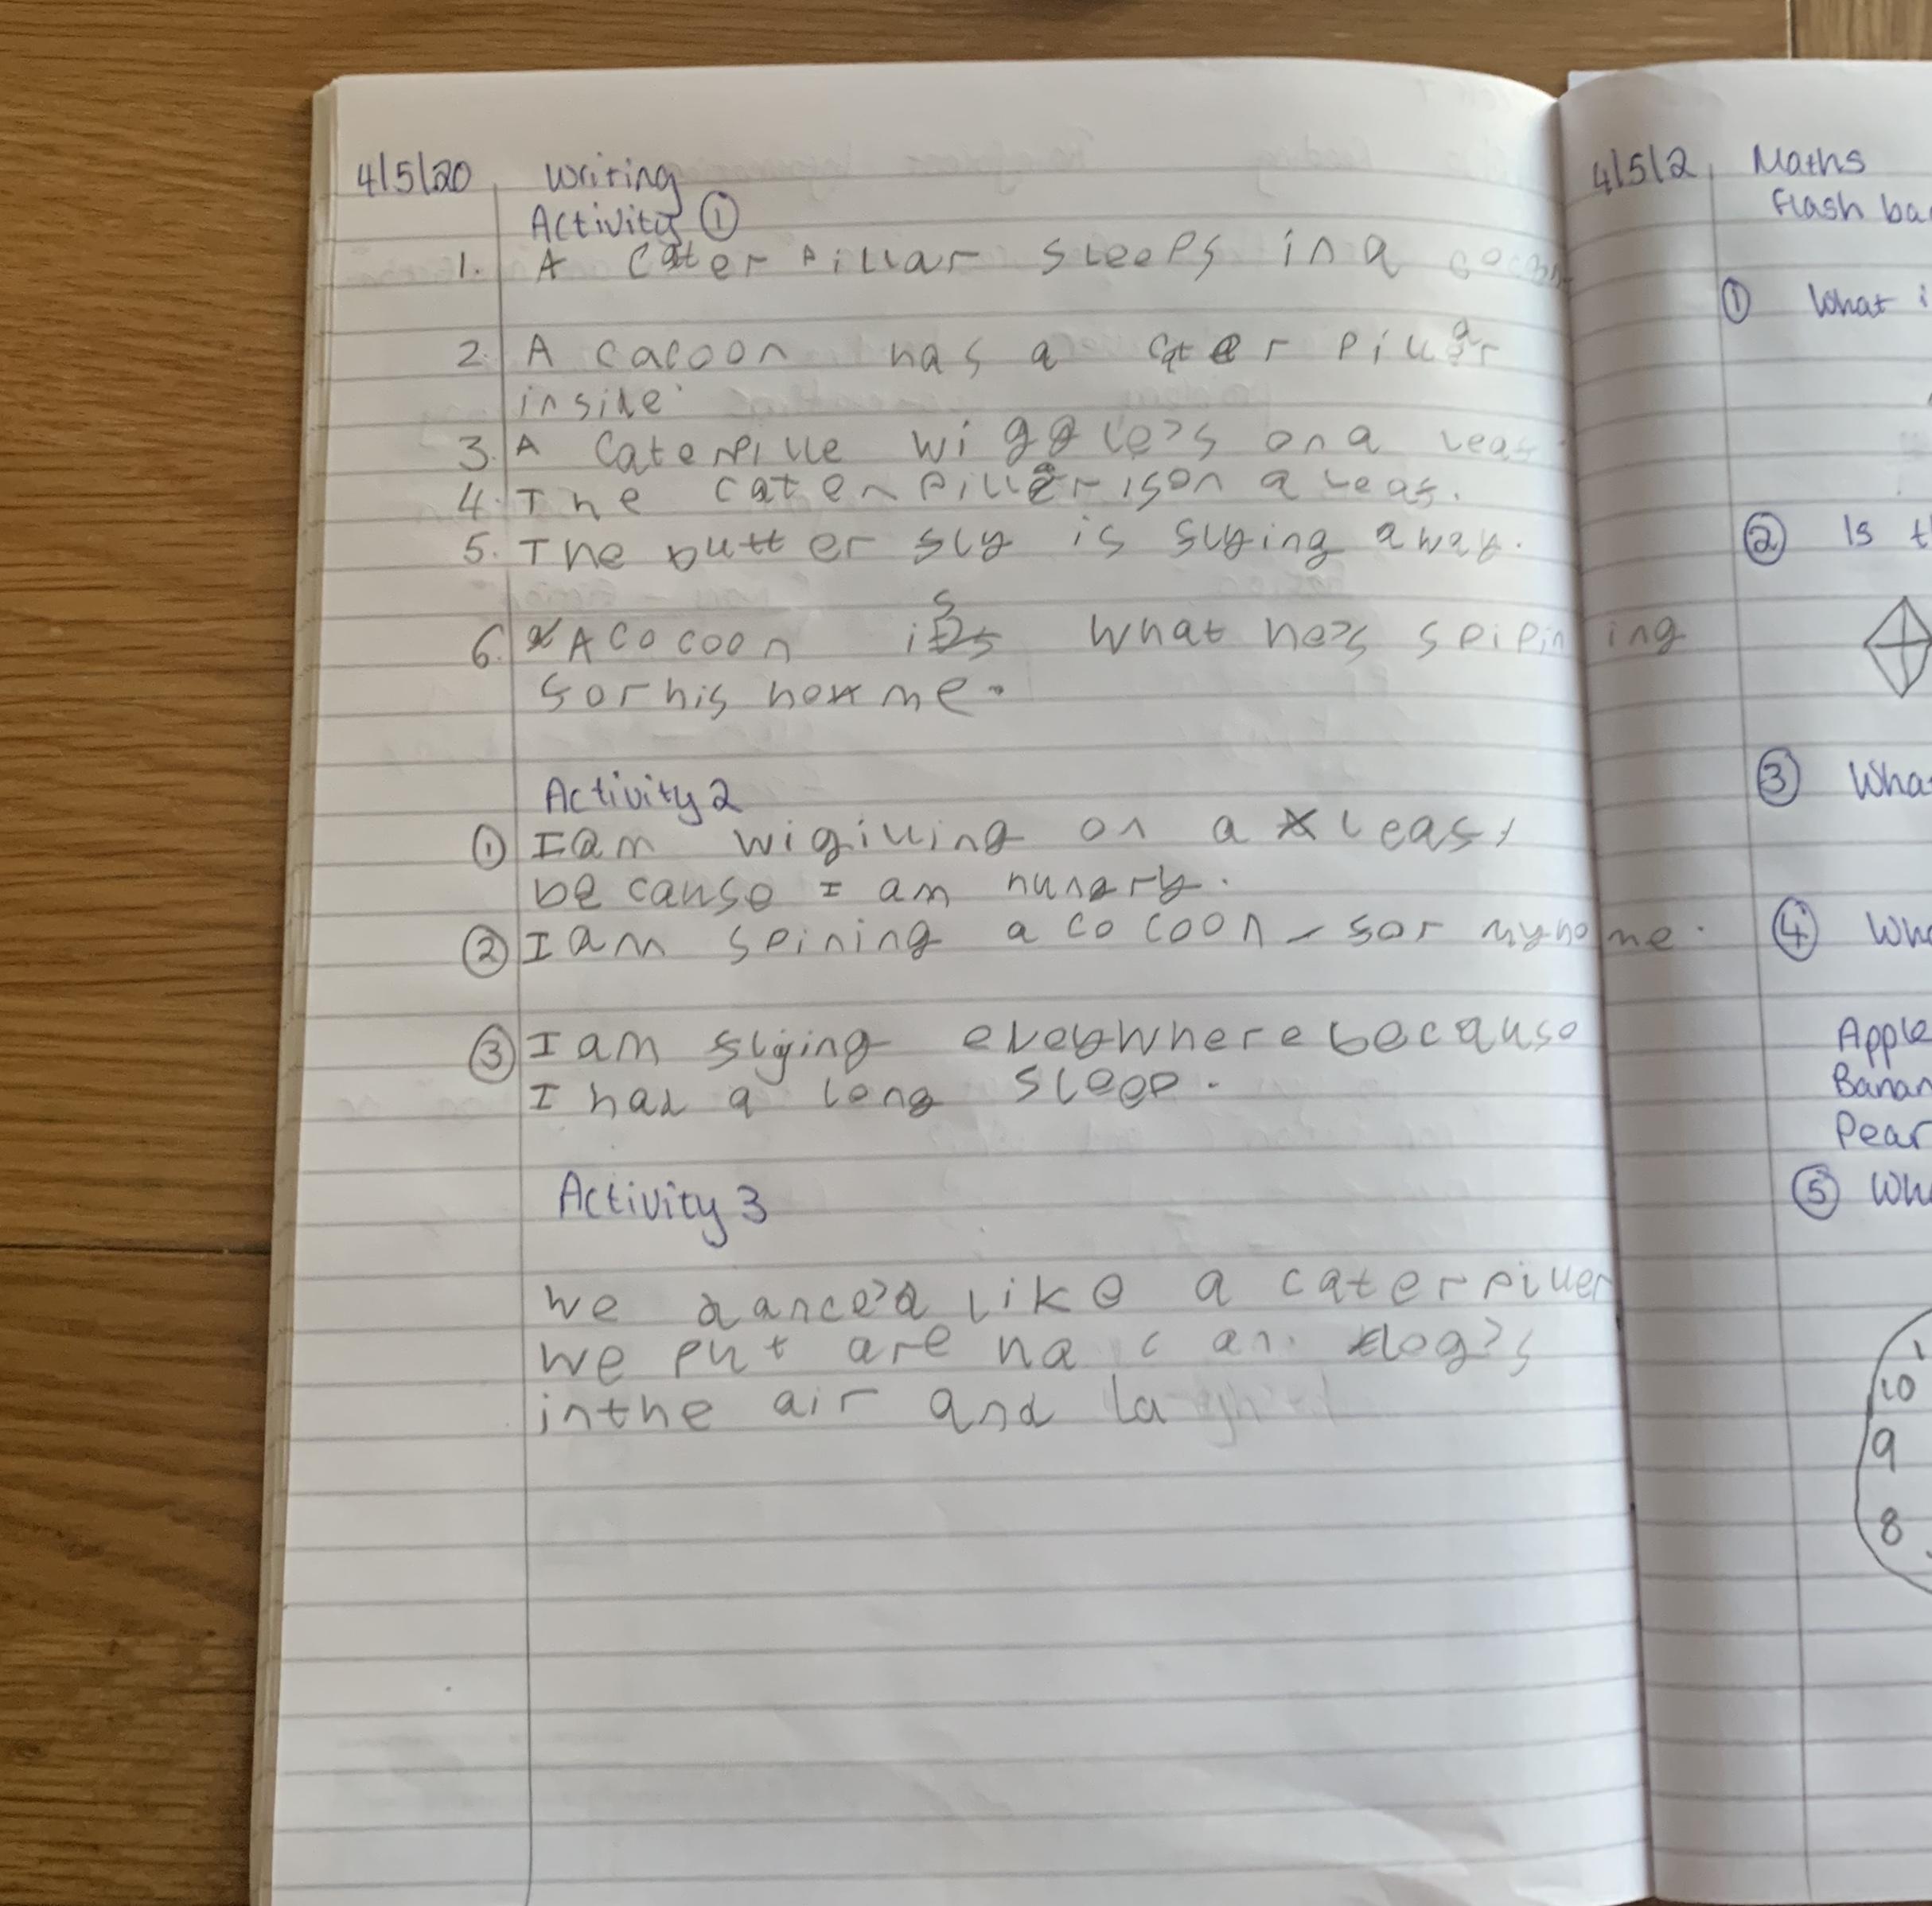 4/5/20 Writing
Activity ①
1. A cater pillar sleeps in a
2. A cacoon has a cater pillar
inside.
3. A caterpille wiggle's on a leaf
4. The caterpillar is on a leaf.
5. The butter fly is flying away.
6. A cocoon is what he's spipining
for his home.
Activity 2
① I am wigilling on a leaf,
be cause I am hungry.
② I am spining a cocoon for my home.
③ I am flying eveywhere because
I had a long sleep.
Activity 3
We dance'd like a caterpiller
We put are log's
in the air and
4/5/2 Maths
Flash ba
① What i
② Is t
③ Wha
④ Wh
Apple
Banan
Pear
⑤ Wh
10
9
8